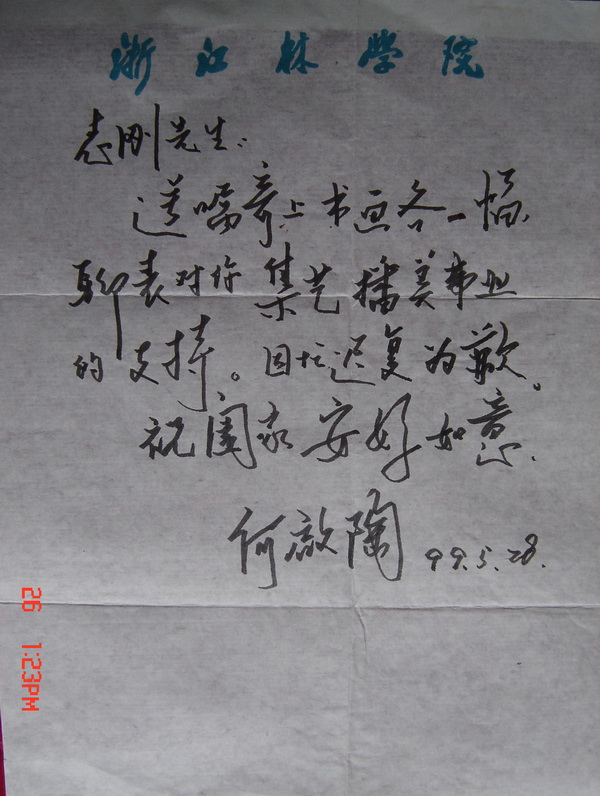 浙江林学院
志刚先生：
送嘱寄上书画各一幅
聊表对你集艺播美事业
的支持。因忙迟复为歉。
祝阖家安好如意.
何敬陶 99.5.28.
26 1:23PM